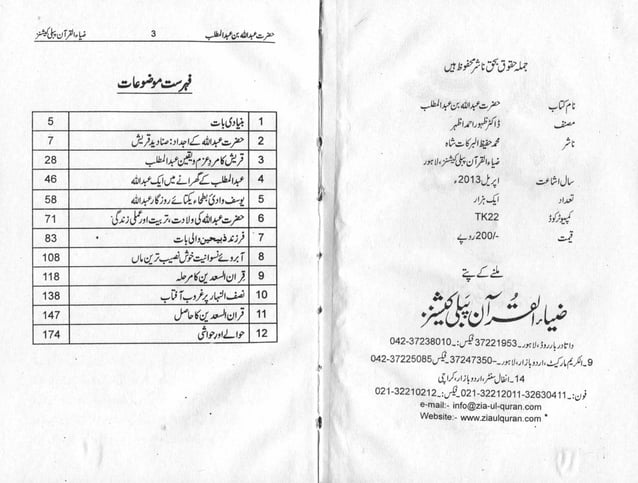 جملہ حقوق بحق ناشر محفوظ ہیں
نام کتاب حضرت عبداللہ بن عبدالمطلب
مصنف ڈاکٹر ظہور احمد اظہر
ناشر محمد حفیظ البرکات شاہ
ضیاء القرآن پبلی کیشنز، لاہور
سال اشاعت اپریل 2013ء
تعداد ایک ہزار
کمپیوٹر کوڈ TK22
قیمت -/200 روپے
ملنے کے پتے
ضیاء القرآن پبلی کیشنز
داتا دربار روڈ، لاہور۔ 37221953 فیکس:۔ 042-37238010
9۔ الکریم مارکیٹ، اردو بازار، لاہور۔ 37247350 فیکس 042-37225085
14۔ انفال سنٹر، اردو بازار، کراچی
فون: 021-32212011-32630411۔ فیکس:۔ 021-32210212
e-mail:- info@zia-ul-quran.com
Website:- www.ziaulquran.com
حضرت عبداللہ بن عبدالمطلب 3 ضیاء القرآن پبلی کیشنز
فہرست موضوعات
1 بنیادی بات 5
2 حضرت عبداللہ کے اجداد: صنادید قریش 7
3 قریش کا مرد عزم و یقین عبدالمطلب 28
4 عبدالمطلب کے گھرانے میں ایک عبداللہ 46
5 یوسف وادی بطحاء، یکتائے روزگار عبداللہ 58
6 حضرت عبداللہ کی ولادت، تربیت اور عملی زندگی 71
7 فرزند ذبیحین والی بات 83
8 آبروئے نسوانیت خوش نصیب ترین ماں 108
9 قران السعدین کا مرحلہ 118
10 نصف النہار پر غروب آفتاب 138
11 قران السعدین کا حاصل 147
12 حوالے اور حواشی 174